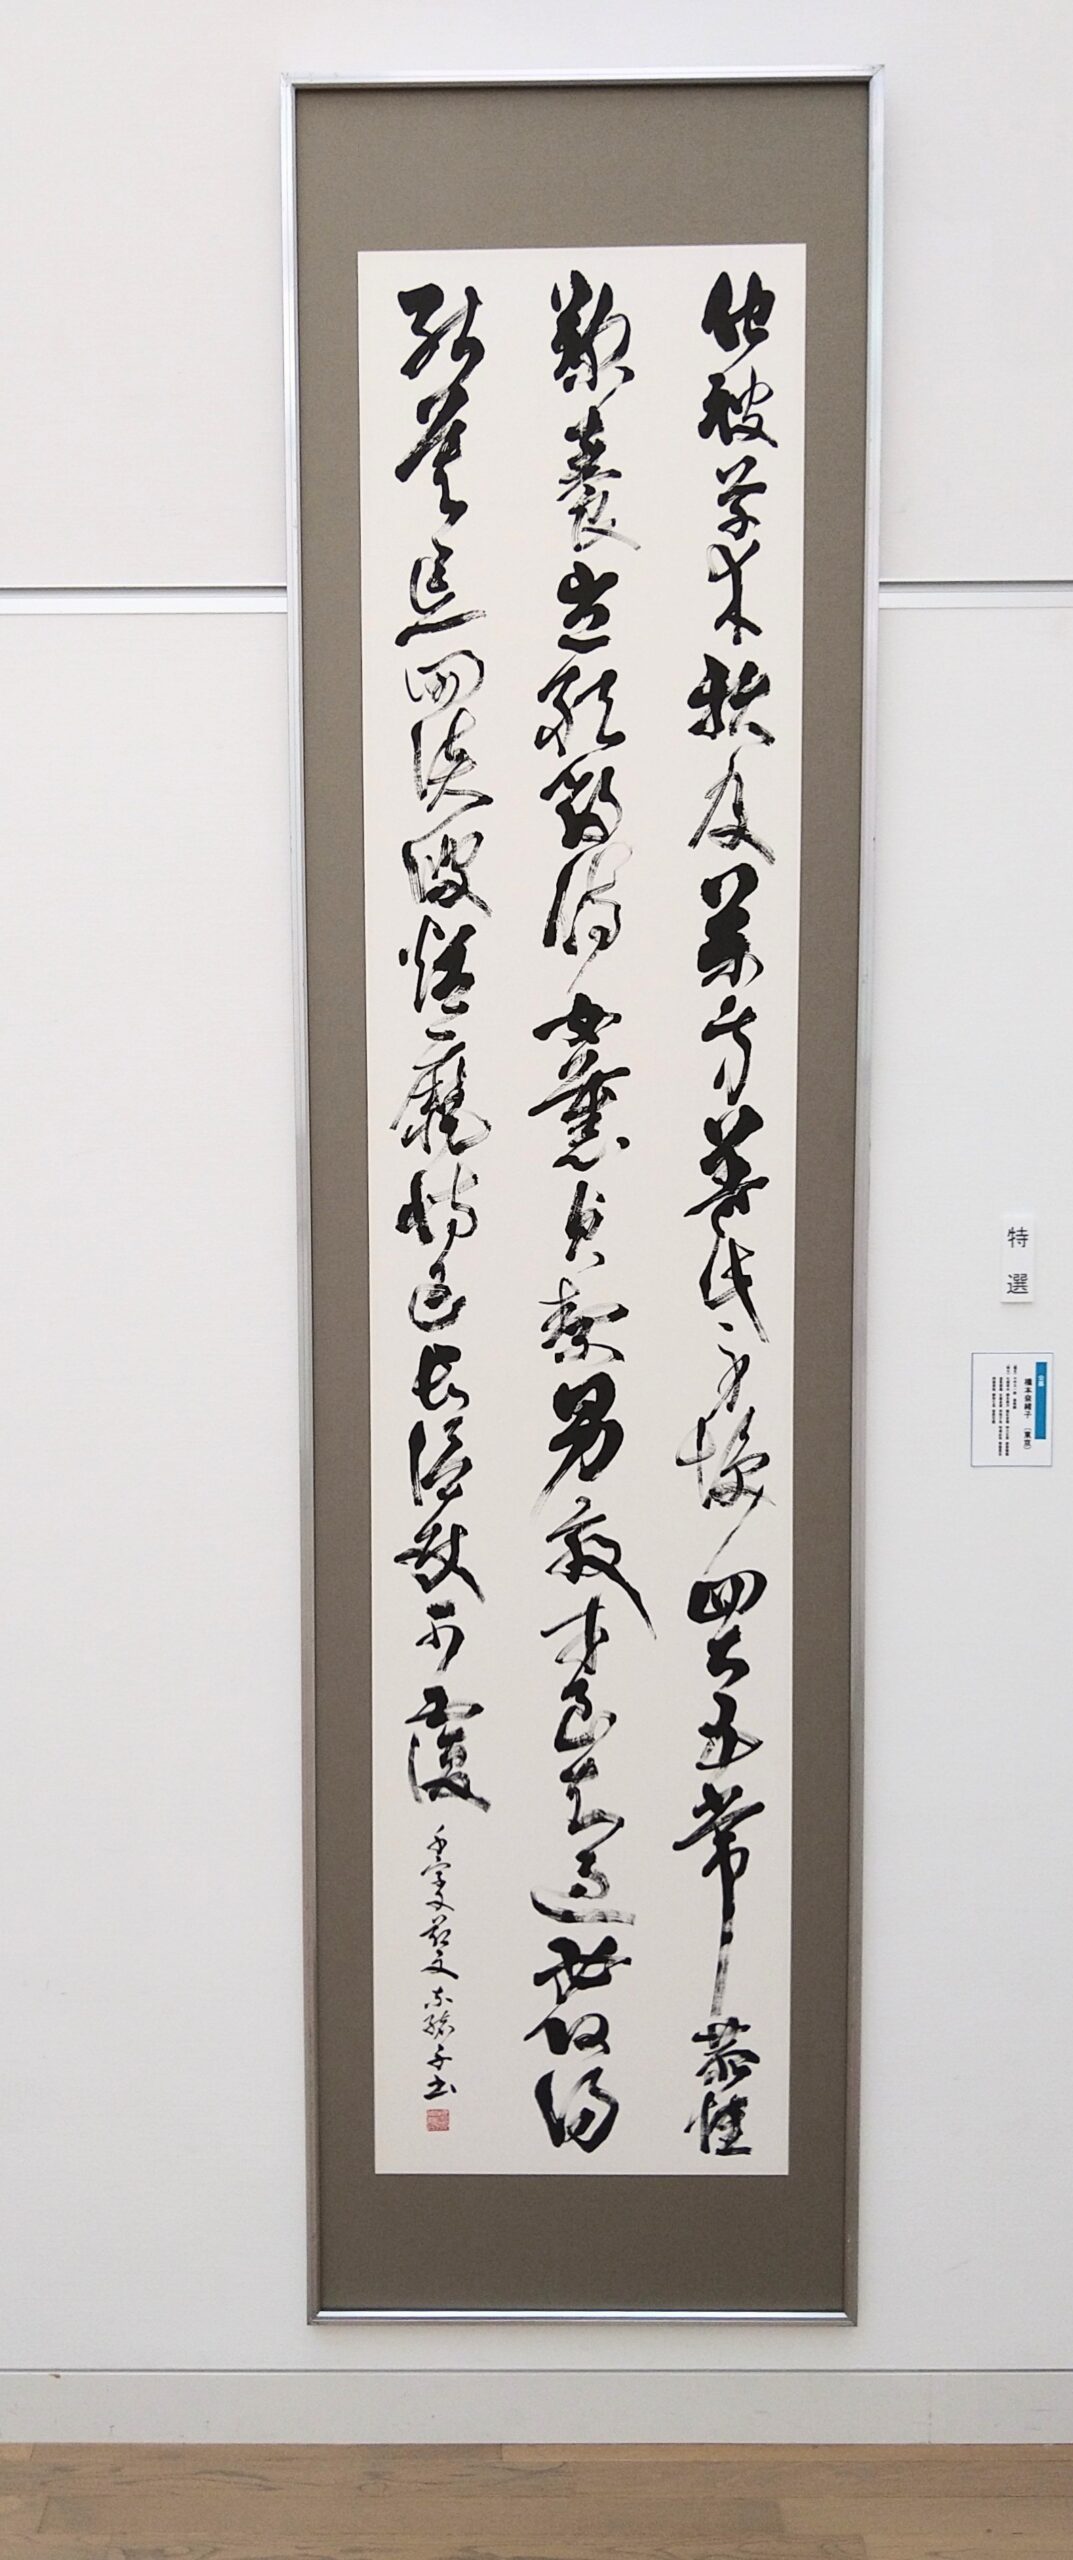 化被草木賴及萬方蓋此身髮四大五常恭惟
鞠養豈敢毀傷女慕貞絜男效才良知過必改得
能莫忘罔談彼短靡恃己長信使可覆
千字文 奈緒子書
特選
公募
橋本奈緒子（東京）